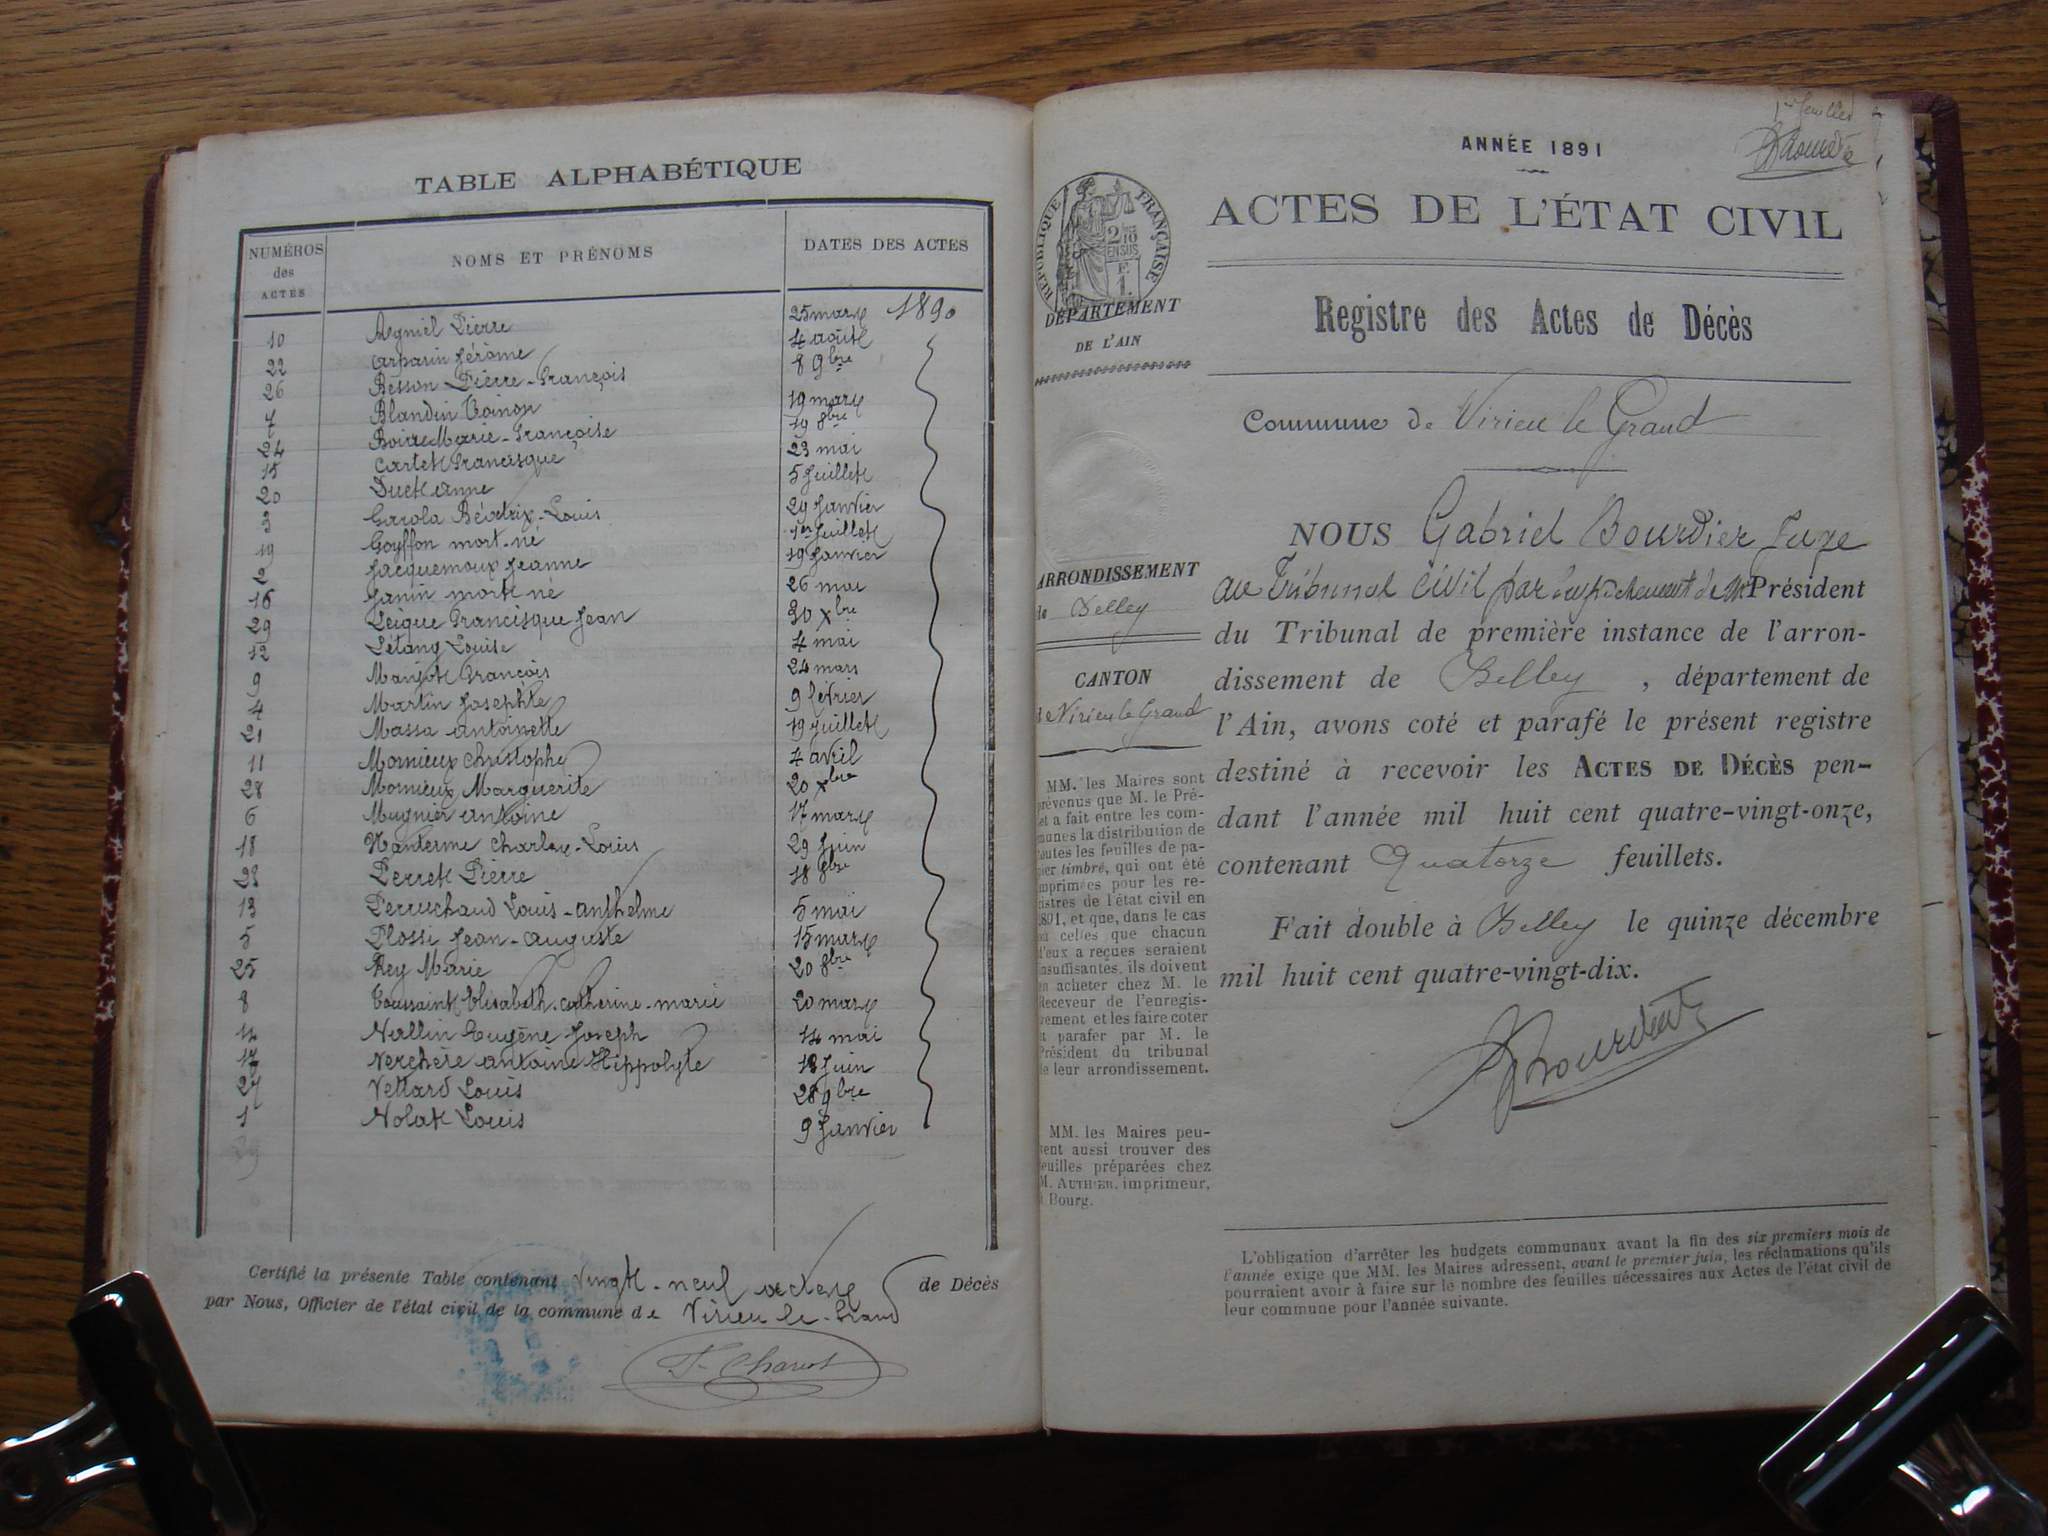 TABLE ALPHABÉTIQUE
NUMÉROS des ACTES
NOMS ET PRÉNOMS
DATES DES ACTES
10 Aymiel Pierre 25 mars 1890
22 Arparin Jérôme 4 août
26 Besson Pierre-François 8 9bre
7 Blandin 19 mars
24 Marie-Françoise 19 8bre
15 Cartet Francisque 23 mai
20 Duet anne 5 Juillet
3 Garola Béatrix-Louis 29 Janvier
19 Goyffon mort-né 1er Juillet
2 Jacquemoux Jeanne 19 Janvier
16 Janin mort né 26 mai
29 Leique Francisque Jean 30 xbre
12 Létang Louise 4 mai
9 Manjot François 24 mars
4 Martin Josephte 9 février
21 Massa antoinette 19 Juillet
11 Mornieux christophe 4 avril
28 Mornieux Marguerite 20 xbre
6 Mugnier antoine 17 mars
18 Nanterme Charles-Louis 29 Juin
23 Perret Pierre 18 8bre
13 Perruchaud Louis-anthelme 5 mai
5 Plossi Jean-auguste 15 mars
25 Rey Marie 20 8bre
8 Toussaint Elisabeth-catherine-marie 20 mars
14 Vallin Eugène Joseph 14 mai
17 Verchère antoine Hippolyte 18 Juin
27 Vettard Louis 28 9bre
1 Volat Louis 9 Janvier
Certifié la présente Table contenant Vingt-neuf actes de Décès
par Nous, Officier de l'état civil de la commune de Virieu-le-Grand
1er feuillet
ANNÉE 1891
ACTES DE L'ÉTAT CIVIL
RÉPUBLIQUE FRANÇAISE
2/10 EN SUS
DÉPARTEMENT
DE L'AIN
Registre des Actes de Décès
Commune de Virieu le Grand
NOUS Gabriel Bourdier Juge
au Tribunal civil par empêchement de M. Président
du Tribunal de première instance de l'arron-
dissement de Belley, département de
l'Ain, avons coté et parafé le présent registre
destiné à recevoir les ACTES DE DÉCÈS pen-
dant l'année mil huit cent quatre-vingt-onze,
contenant Quatorze feuillets.
Fait double à Belley le quinze décembre
mil huit cent quatre-vingt-dix.
ARRONDISSEMENT
de Belley
CANTON
de Virieu le Grand
MM. les Maires sont
prévenus que M. le Pré-
et a fait entre les com-
munes la distribution de
toutes les feuilles de pa-
pier timbré, qui ont été
imprimées pour les re-
gistres de l'état civil en
1891, et que, dans le cas
où celles que chacun
d'eux a reçues seraient
insuffisantes, ils doivent
en acheter chez M. le
Receveur de l'enregis-
trement et les faire coter
et parafer par M. le
Président du tribunal
de leur arrondissement.
MM. les Maires peu-
vent aussi trouver des
feuilles préparées chez
M. AUTHIER, imprimeur,
à Bourg.
L'obligation d'arrêter les budgets communaux avant la fin des six premiers mois de
l'année exige que MM. les Maires adressent, avant le premier juin, les réclamations qu'ils
pourraient avoir à faire sur le nombre des feuilles nécessaires aux Actes de l'état civil de
leur commune pour l'année suivante.